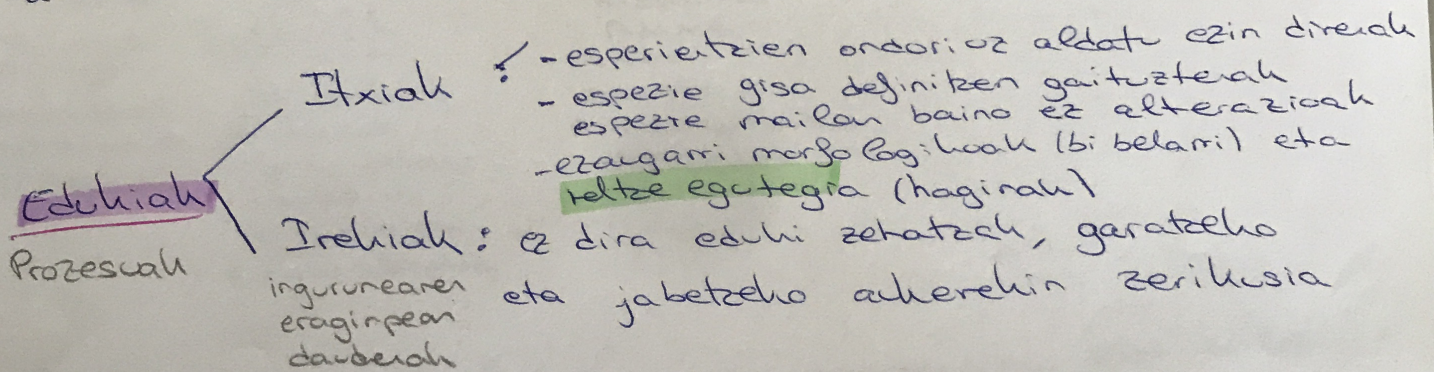 Itxiak : - esperientzien ondorioz aldatu ezin direnak
- espezie gisa definitzen gaituztenak
espezie mailan baino ez alterazioak
- ezaugarri morfologikoak (bi belarri) eta
heltze egutegia (haginak)
Edukiak
Prozesuak
Irekiak : ez dira eduki zehatzak, garatzeko
eta jabetzeko aukerekin zerikusia
ingurunearen
eraginpean
daudenak